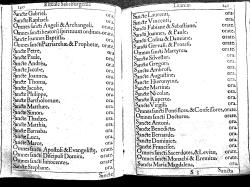 Rituale Salisburgense
Sancte Gabriel, ora.
Sancte Raphael, ora.
Omnes sancti Angeli & Archangeli, orate.
Omnes sancti beatorũ spirituum ordines, orate.
Sancte Ioannes Baptista, ora.
Omnes sancti Patriarchæ, & Prophetæ, orate.
Sancte Petre, ora.
Sancte Paule, ora.
Sancte Andrea, ora.
Sancte Iacobe, ora.
Sancte Ioannes, ora.
Sancte Thoma, ora.
Sancte Iacobe, ora.
Sancte Philippe, ora.
Sancte Bartholomæe, ora.
Sancte Matthæe, ora.
Sancte Simon, ora.
Sancte Thadæe, ora.
Sancte Matthia, ora.
Sancte Barnaba, ora.
Sancte Luca, ora.
Sancte Marce, ora.
Omnes sancti Apostoli & Euangelistæ, orate.
Omnes sancti Discipuli Domini, orate.
Omnes sancti Innocentes, orate.
Sancte Stephane, ora.
Sancte Laurenti, ora.
Sancte Vincenti, ora.
Sancti Fabiane & Sebastiane, orate.
Sancti Ioannes, & Paule, orate.
Sancti Cosma & Damiane, orate.
Sancti Geruasi, & Protasi, orate.
Omnes sancti Martyres, orate.
Sancte Siluester, ora.
Sancte Gregori, ora.
Sancte Ambrosi, ora.
Sancte Augustine, ora.
Sancte Hieronyme, ora.
Sancte Martine, ora.
Sancte Nicolae, ora.
Sancte Ruperte, ora.
Sancte Virgili, ora.
Omnes sancti Pontifices, & Confessores, orate.
Omnes sancti Doctores, orate.
Sancte Antoni, ora.
Sancte Benedicte, ora.
Sancte Bernarde, ora.
Sancte Dominice, ora.
Sancte Francisce, ora.
Omnes sancti Sacerdotes, & Leuitæ, orate.
Omnes sancti Monachi & Eremitæ, orate.
Sancta Maria Magdalena, ora.